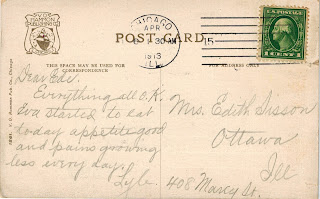 CHICAGO
APR
30 AM
1913
ILL.
15
POST CARD
THIS SPACE MAY BE USED FOR
CORRESPONDENCE
FOR ADDRESS ONLY
U.S. POSTAGE
Dear Ede.
Everything all O.K.
Eva started to eat
today appetite good
and pains growing
less every day.
Lyle.
Mrs. Edith Sisson
Ottawa
Ill
408 Marcy St.